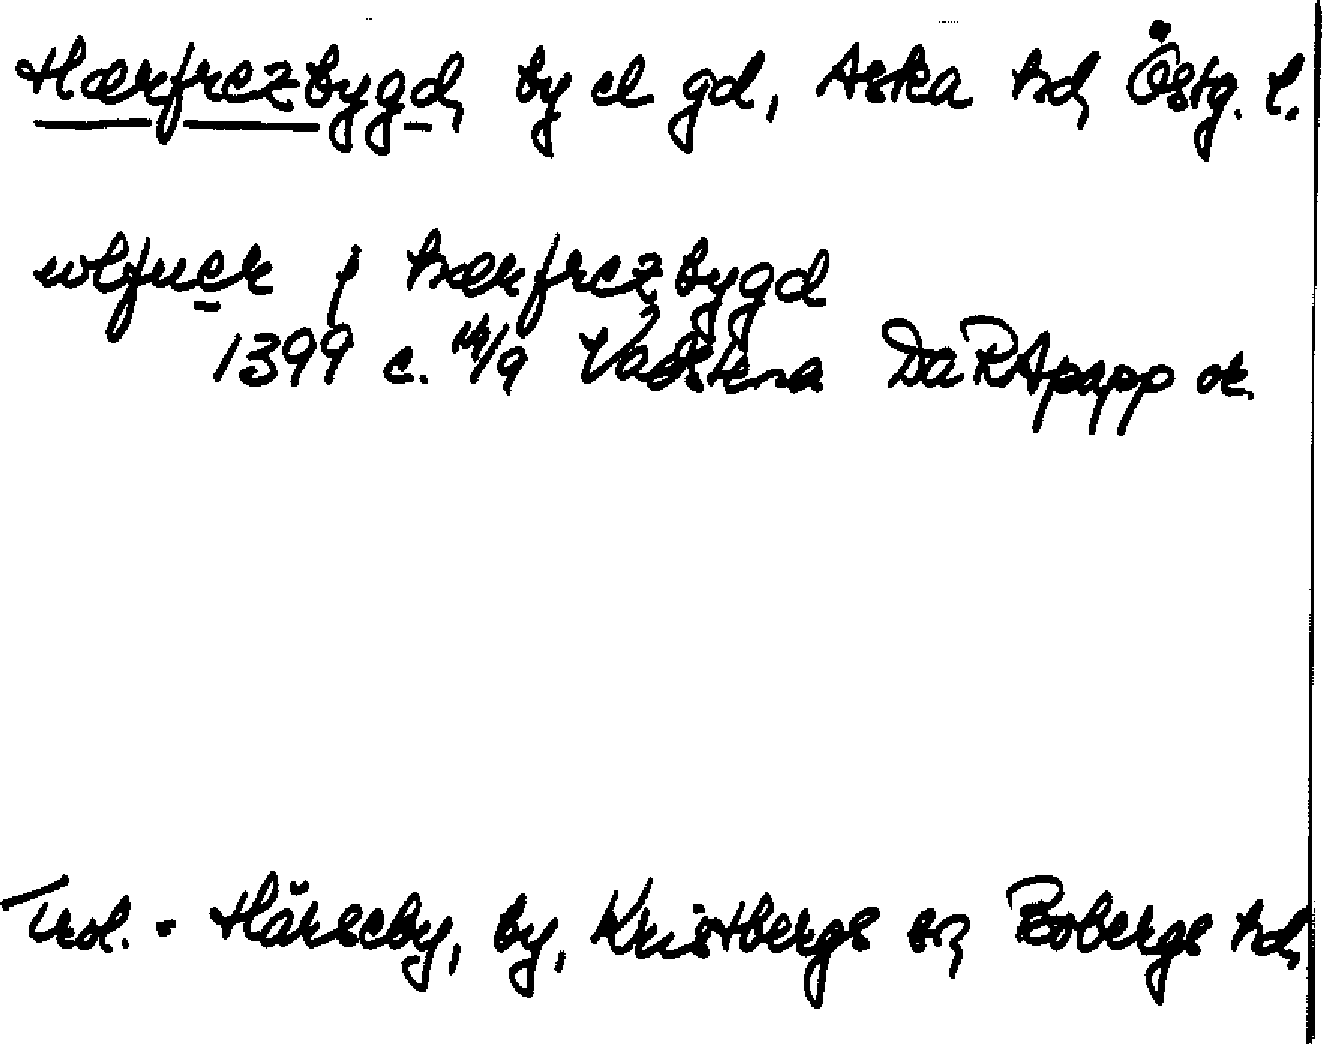 Hærfrezbygd, by el gd, Aska hd, Östg. l.
wlfuer j hærfrezbygd
1399 c. 14/9 Vadstena DaRApapp or.
Trol. = Härseby, by, Kristbergs sn, Bobergs hd,